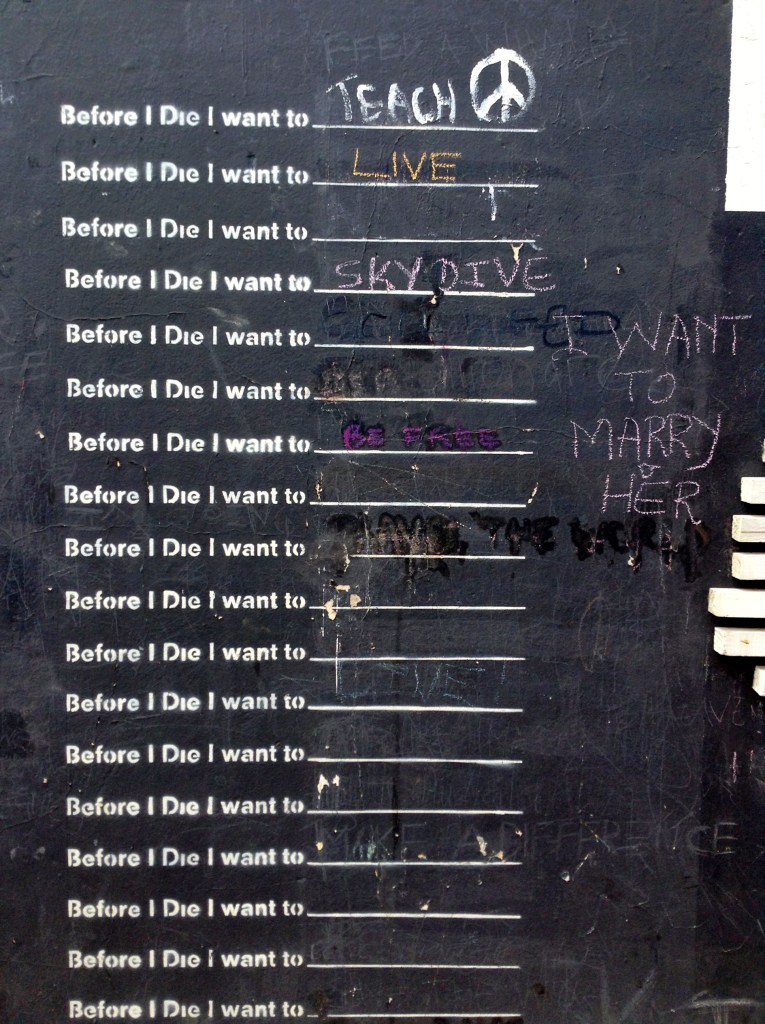 FEED A
Before I Die I want to TEACH ☮
Before I Die I want to LIVE
Before I Die I want to
Before I Die I want to SKYDIVE
Before I Die I want to
Before I Die I want to
Before I Die I want to BE FREE
Before I Die I want to
Before I Die I want to TRAVEL THE WORLD
Before I Die I want to
Before I Die I want to
Before I Die I want to
Before I Die I want to
Before I Die I want to
Before I Die I want to MAKE A DIFFERENCE
Before I Die I want to
Before I Die I want to
Before I Die I want to
I WANT
TO
MARRY
HER